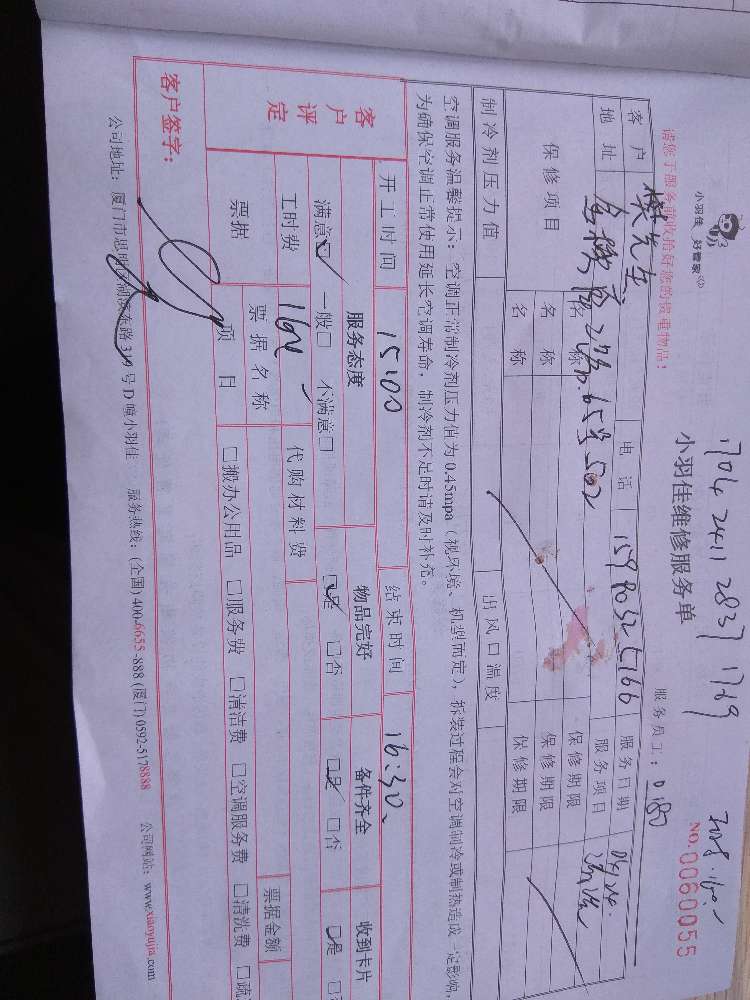 1704 2411 2837 1769
小羽佳 好管家
小羽佳维修服务单
NO.0060055
请您于服务前收拾好您的贵重物品!
服务员工: 0180
客户 樊先生 电话 服务日期 04.24.
地址 65号502 服务项目
保修项目 名称 保修期限
名称 保修期限
名称 保修期限
制冷剂压力值 出风口温度
空调服务温馨提示:空调正常制冷剂压力值为0.45mpa(视环境、机型而定),拆装过程会对空调制冷或制热造成一定影响,
为确保空调正常使用延长空调寿命,制冷剂不足时请及时补充。
开工时间 15:00 结束时间 16:30
客户评定
服务态度 物品完好 备件齐全 收到卡片
满意☑ 一般□ 不满意□ ☑是 □否 ☑是 □否 □是
工时费 160 代购材料费
票据 票据名称 票据金额
项目 □搬办公用品 □服务费 □清洁费 □空调服务费 □清洗费 □疏
客户签字:
公司地址:厦门市思明区湖滨东路319号D幢小羽佳 服务热线:(全国)400-6655-888 (厦门)0592-5178888 公司网站:www.xiaoyujia.com